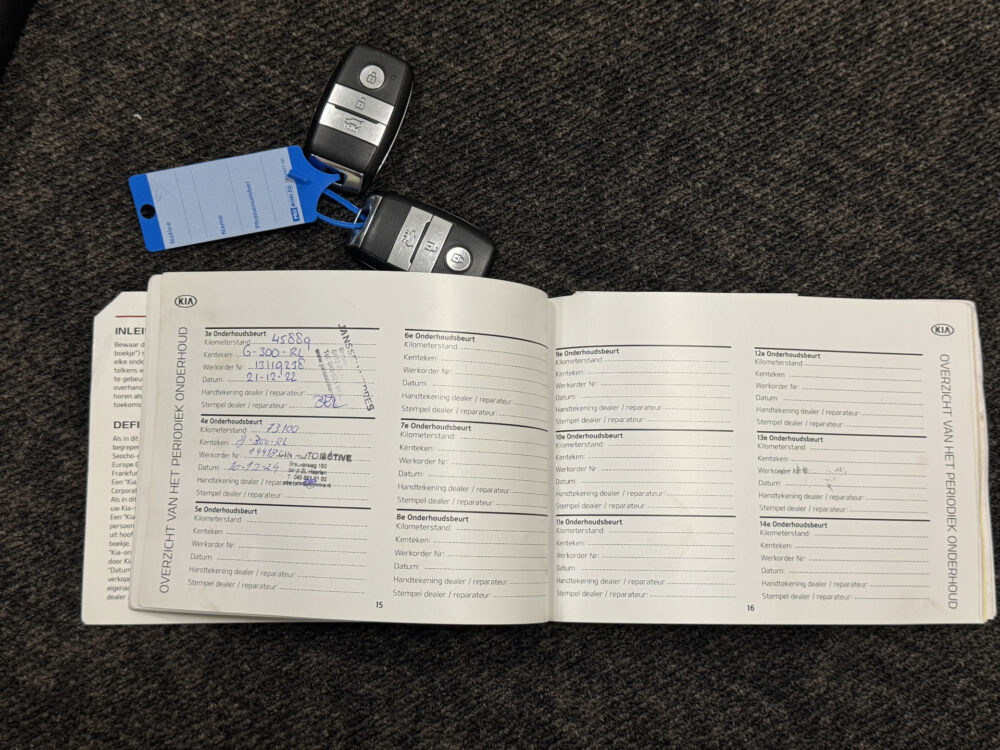 Notice
Name
Phonenumber
KIA
OVERZICHT VAN HET PERIODIEK ONDERHOUD
3e Onderhoudsbeurt
Kilometerstand: 45889
Kenteken: G-300-RL
Werkorder Nr: 13119238
Datum: 21-12-22
Handtekening dealer / reparateur:
Stempel dealer / reparateur:
4e Onderhoudsbeurt
Kilometerstand: 73100
Kenteken: G-300-RL
Werkorder Nr:
AUTOMOTIVE
Datum: 10-12-24
Handtekening dealer / reparateur:
Stempel dealer / reparateur:
5e Onderhoudsbeurt
Kilometerstand:
Kenteken:
Werkorder Nr:
Datum:
Handtekening dealer / reparateur:
Stempel dealer / reparateur:
15
6e Onderhoudsbeurt
Kilometerstand:
Kenteken:
Werkorder Nr:
Datum:
Handtekening dealer / reparateur:
Stempel dealer / reparateur:
7e Onderhoudsbeurt
Kilometerstand:
Kenteken:
Werkorder Nr:
Datum:
Handtekening dealer / reparateur:
Stempel dealer / reparateur:
8e Onderhoudsbeurt
Kilometerstand:
Kenteken:
Werkorder Nr:
Datum:
Handtekening dealer / reparateur:
Stempel dealer / reparateur:
9e Onderhoudsbeurt
Kilometerstand:
Kenteken:
Werkorder Nr:
Datum:
Handtekening dealer / reparateur:
Stempel dealer / reparateur:
10e Onderhoudsbeurt
Kilometerstand:
Kenteken:
Werkorder Nr:
Datum:
Handtekening dealer / reparateur:
Stempel dealer / reparateur:
11e Onderhoudsbeurt
Kilometerstand:
Kenteken:
Werkorder Nr:
Datum:
Handtekening dealer / reparateur:
Stempel dealer / reparateur:
16
12e Onderhoudsbeurt
Kilometerstand:
Kenteken:
Werkorder Nr:
Datum:
Handtekening dealer / reparateur:
Stempel dealer / reparateur:
13e Onderhoudsbeurt
Kilometerstand:
Kenteken:
Werkorder Nr:
Datum:
Handtekening dealer / reparateur:
Stempel dealer / reparateur:
14e Onderhoudsbeurt
Kilometerstand:
Kenteken:
Werkorder Nr:
Datum:
Handtekening dealer / reparateur:
Stempel dealer / reparateur:
KIA
OVERZICHT VAN HET PERIODIEK ONDERHOUD